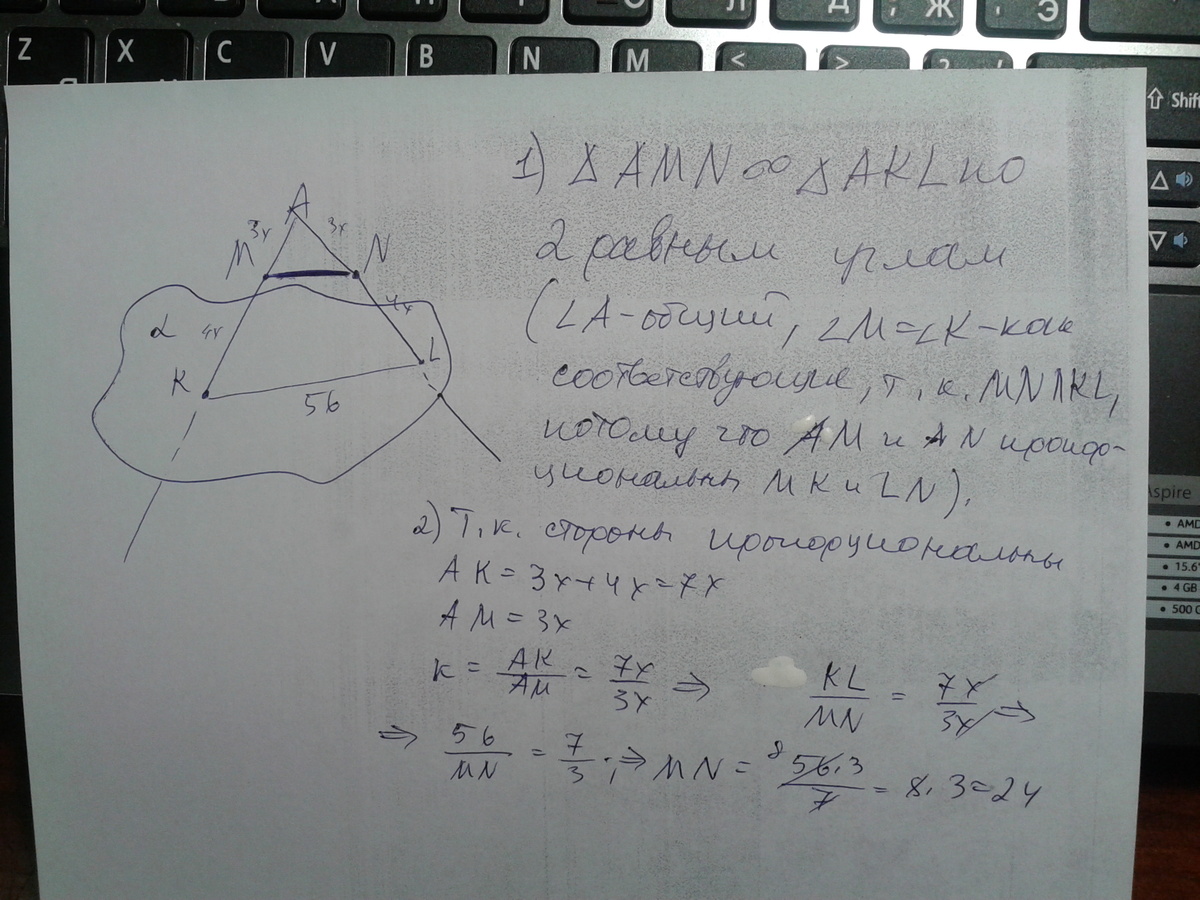 Z X C V B N M < >
Л Д ; Ж ' Э
Shift
Aspire
AMD
AMD
15.6"
4 GB
500 G
A
3x 3x
M N
α 4x 4x
K L
56
1) Δ AMN ∞ Δ AKL по
2 равным углам
(∠A - общий, ∠M = ∠K - как
соответствующие, т.к. MN∥KL,
потому что AM и AN пропор-
циональны MK и LN).
2) Т.к. стороны пропорциональны
AK = 3x + 4x = 7x
AM = 3x
K = AK/AM = 7x/3x ⇒ KL/MN = 7x/3x ⇒
⇒ 56/MN = 7/3 ; ⇒ MN = 8 56·3/7 = 8·3 = 24